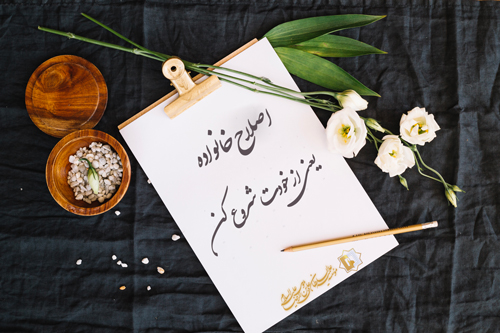 اصلاح خانواده
یعنی از خودت شروع کن